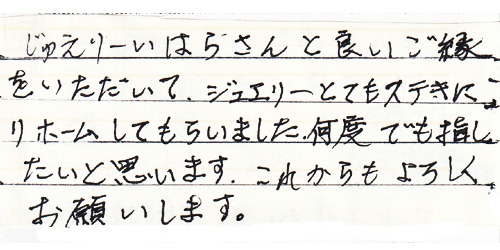 じゅえりーいはらさんと良いご縁
をいただいて、ジュエリーとてもステキに
リホームしてもらいました。何度でも指し
たいと思います。これからもよろしく
お願いします。